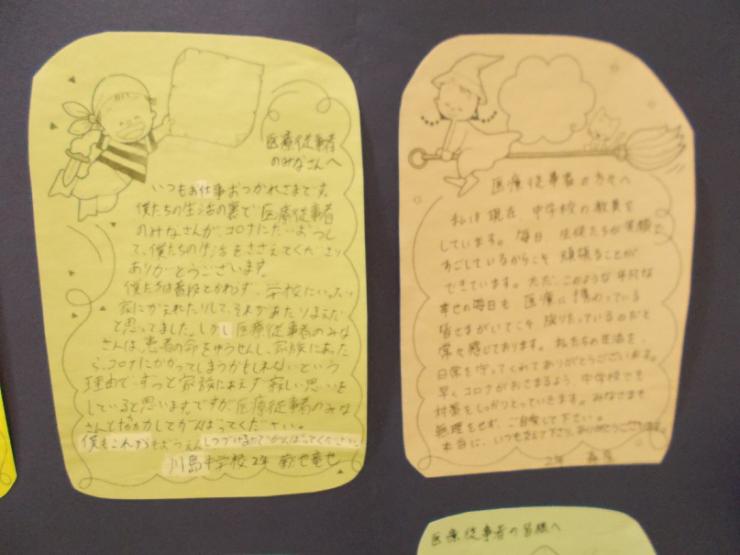 医療従事者
のみなさんへ
いつもお仕事おつかれさまです。
僕たちの生活の裏で医療従事者
のみなさんが、コロナにたいおうし
て、僕たちの生活をささえてくださり
ありがとうございます。
僕たちは普段とかわらず、学校にいったり
家にかえれたりして、それがあたりまえだ
と思ってました。しかし医療従事者のみな
さんは、患者の命をゆうせんし、家族にあった
ら、コロナにかかってしまうかもしれないという
理由で、ずっと家族にあえず寂しい思いを
していると思います。ですが医療従事者のみな
さんと協力してがんばってください。
僕もこれからもおうえんしつづけるのでがんばってください。
川島中学校2年
医療従事者の方々へ
私は現在、中学校の教員を
しています。毎日、生徒たちが笑顔で
すごしているからこそ頑張ることが
できています。ただ、このような平凡な
幸せの毎日も医療に携わっている
皆さまがいてこそ成りたっているのだと
常々感じております。私たちの生活を、
日常を守ってくれてありがとうございます。
早くコロナがおさまるよう、中学校でも
対策をしっかりとっていきます。みなさまも
無理をせず、ご自愛して下さい。
本当に、いつも支えて下さり、ありがとうございます。
2年
医療従事者の皆様へ